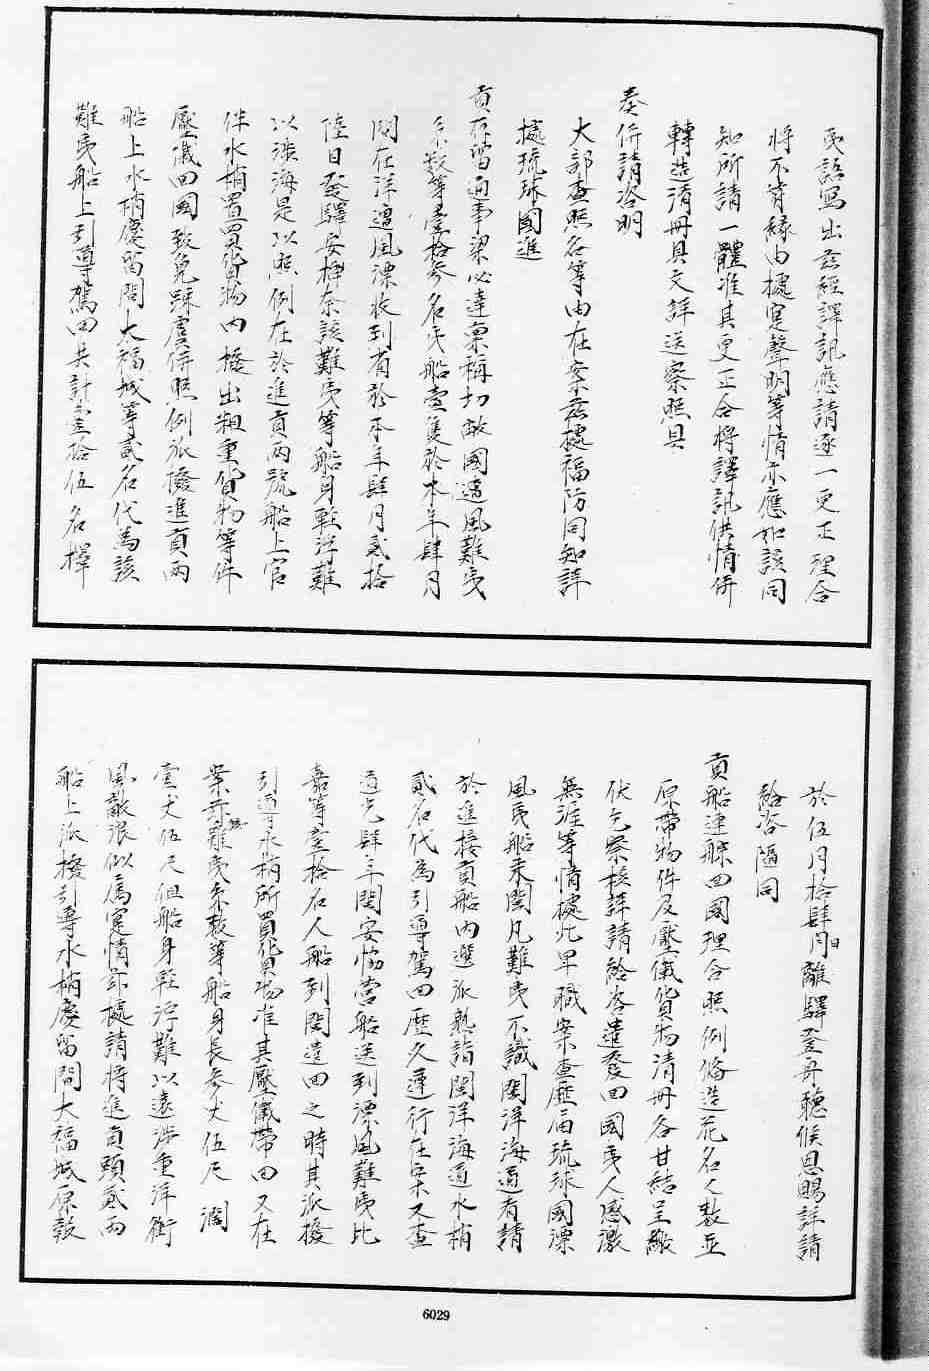 夷語寫出茲經譯訊應請逐一更正理合
將不符緣由據寔聲明等情亦應如該同
知所請一體准其更正合將譯訊供情併
轉造清冊具文詳送察照具
奏併請咨明
大部查照各等由在案茲據福防同知詳
據琉球國進
貢存留通事梁必達稟稱切敝國遭風難夷
等壹拾參名民船壹隻於本年肆月
閩在洋遭風漂收到省於本年肆月貳拾
陸日發驛安插奈該難夷等船身輕浮難
以涉海是以照例在於進貢兩號船上官
伴水梢置買貨物內撥出粗重貨物等件
壓儎回國致免踈虞併照例派撥進貢兩
船上水梢慶留間大福城等貳名代為該
難夷船上引導駕回共計壹拾伍名擇
於伍月拾肆日離驛登舟聽候恩賜詳請
給咨隨同
貢船連䑸回國理合照例備造花名人數並
原帶物件及壓儎貨物清冊各甘結呈繳
伏乞察核詳請給咨遣發回國夷人感激
無涯等情據此卑職案查歷屆琉球國漂
風夷船來閩凡難夷不識閩洋海道者請
於進接貢船內選派熟諳閩洋海道水梢
貳名代為引導駕回歷久遵行在案又查
道光肆年閩安協營船送到漂風難夷比
嘉等壹拾名人船到閩遣回之時其派撥
引導水梢所買貨物准其壓儎帶回又在
案茲難夷等船身長參丈伍尺濶
壹丈伍尺但船身輕浮難以遠涉重洋衝
風敵浪似屬寔情亦據請將進貢頭貳兩
船上派撥引導水梢慶留間大福城原諳
6029